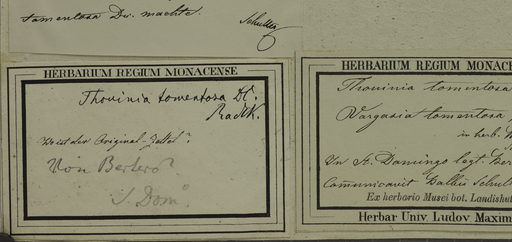 tomentosa Dc. machte.
Schultes
HERBARIUM REGIUM MONACENSE
Thouinia tomentosa DC.
Radlk.
Wo ist der Original-Zettel?
Von Bertero?
S. Dom
HERBARIUM REGIUM MONACE
Thouinia tomentosa
Vargasia tomentosa
in herb.
In St. Domingo legt. Ber
Communicavit Balbis Schult
Ex herbario Musei bot. Landishut
Herbar Univ. Ludov. Maxim